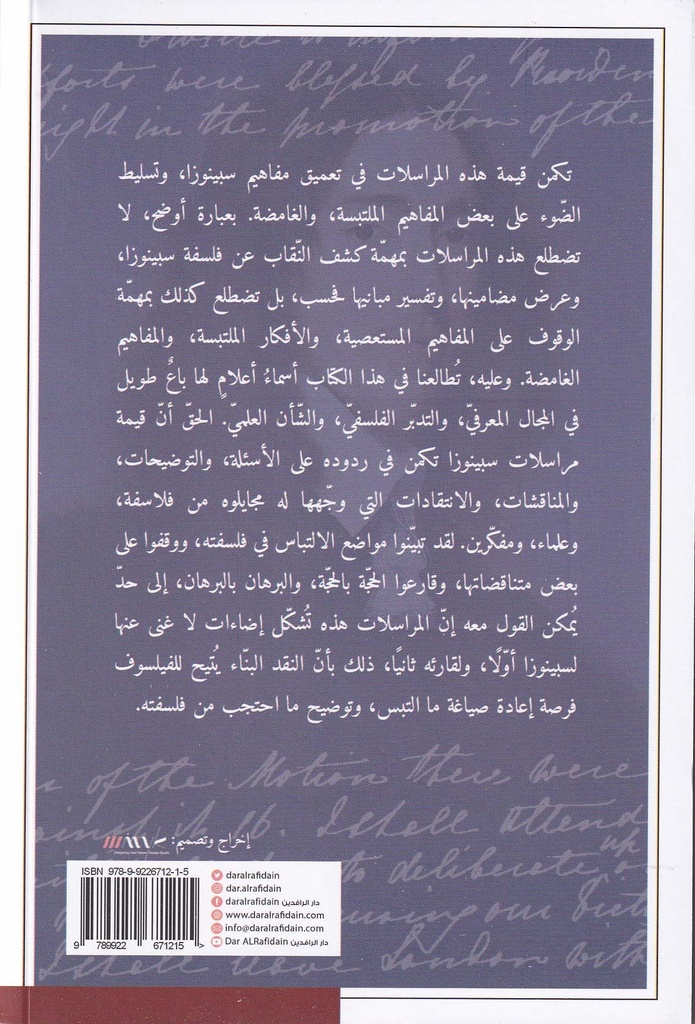 forts were blessed by Providen
ight in the promotion of the
تكمن قيمة هذه المراسلات في تعميق مفاهيم سبينوزا، وتسليط
الضّوء على بعض المفاهيم الملتبسة، والغامضة. بعبارة أوضح، لا
تضطلع هذه المراسلات بمهمّة كشف النّقاب عن فلسفة سبينوزا،
وعرض مضامينها، وتفسير مبانيها فحسب، بل تضطلع كذلك بمهمّة
الوقوف على المفاهيم المستعصية، والأفكار الملتبسة، والمفاهيم
الغامضة. وعليه، تُطالعنا في هذا الكتاب أسماءُ أعلامٍ لها باعٌ طويل
في المجال المعرفيّ، والتدبّر الفلسفيّ، والشّأن العلميّ. الحقّ أنّ قيمة
مراسلات سبينوزا تكمن في ردوده على الأسئلة، والتوضيحات،
والمناقشات، والانتقادات التي وجّهها له مجايلوه من فلاسفة،
وعلماء، ومفكّرين. لقد تبيّنوا مواضع الالتباس في فلسفته، ووقفوا على
بعض متناقضاتها، وقارعوا الحجّة بالحجّة، والبرهان بالبرهان، إلى حدّ
يُمكن القول معه إنّ المراسلات هذه تُشكّل إضاءات لا غنى عنها
لسبينوزا أوّلًا، ولقارئه ثانيًا، ذلك بأنّ النقد البنّاء يُتيح للفيلسوف
فرصة إعادة صياغة ما التبس، وتوضيح ما احتجب من فلسفته.
of the Motion there were
I shall attend
to deliberate
our
I shall leave London with
إخراج وتصميم:
ISBN 978-9-9226712-1-5
9 789922 671215 >
daralrafidain
dar.alrafidain
دار الرافدين daralrafidain
www.daralrafidain.com
info@daralrafidain.com
Dar ALRafidain دار الرافدين